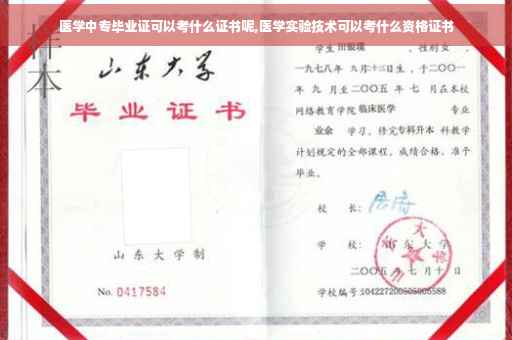 医学中专毕业证可以考什么证书呢,医学实验技术可以考什么资格证书
样本
山东大学
毕业证书
山东大学制
No. 0417584
学生 田银瑞 ，性别 女 ，
一九七八年 九月十二日生，于二00一
年 九 月至二00五 年 七 月在本校
网络教育学院 临床医学 专业
业余 学习，修完专科升本 科教学
计划规定的全部课程，成绩合格，准予
毕业。
校 长：
学 校： 山东大学
二00五 年 七 月 十 日
学校编号：104227200505005588